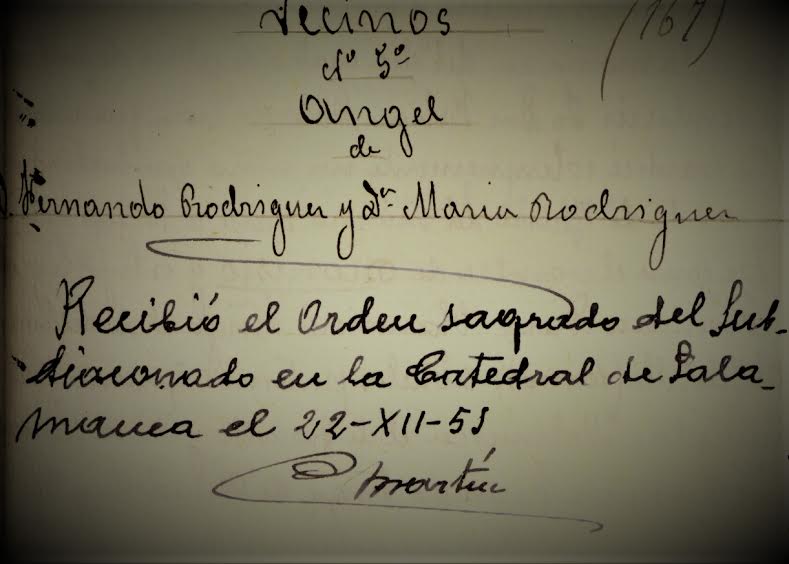 Vecinos
(167)
Nº 5º
Angel
de
D. Fernando Rodriguez y Dª Maria Rodriguez
Recibió el Orden sagrado del Sub-
diaconado en la Catedral de Sala-
manca el 22-XII-51
Martín